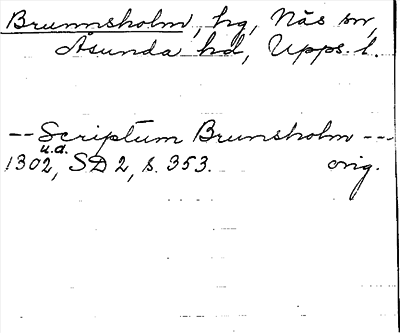 Brunnsholm, hg, Näs sn,
Åsunda hd, Upps. l.
-- Scriptum Brunsholm ---
u.d.
1302, SD 2, s. 353. orig.